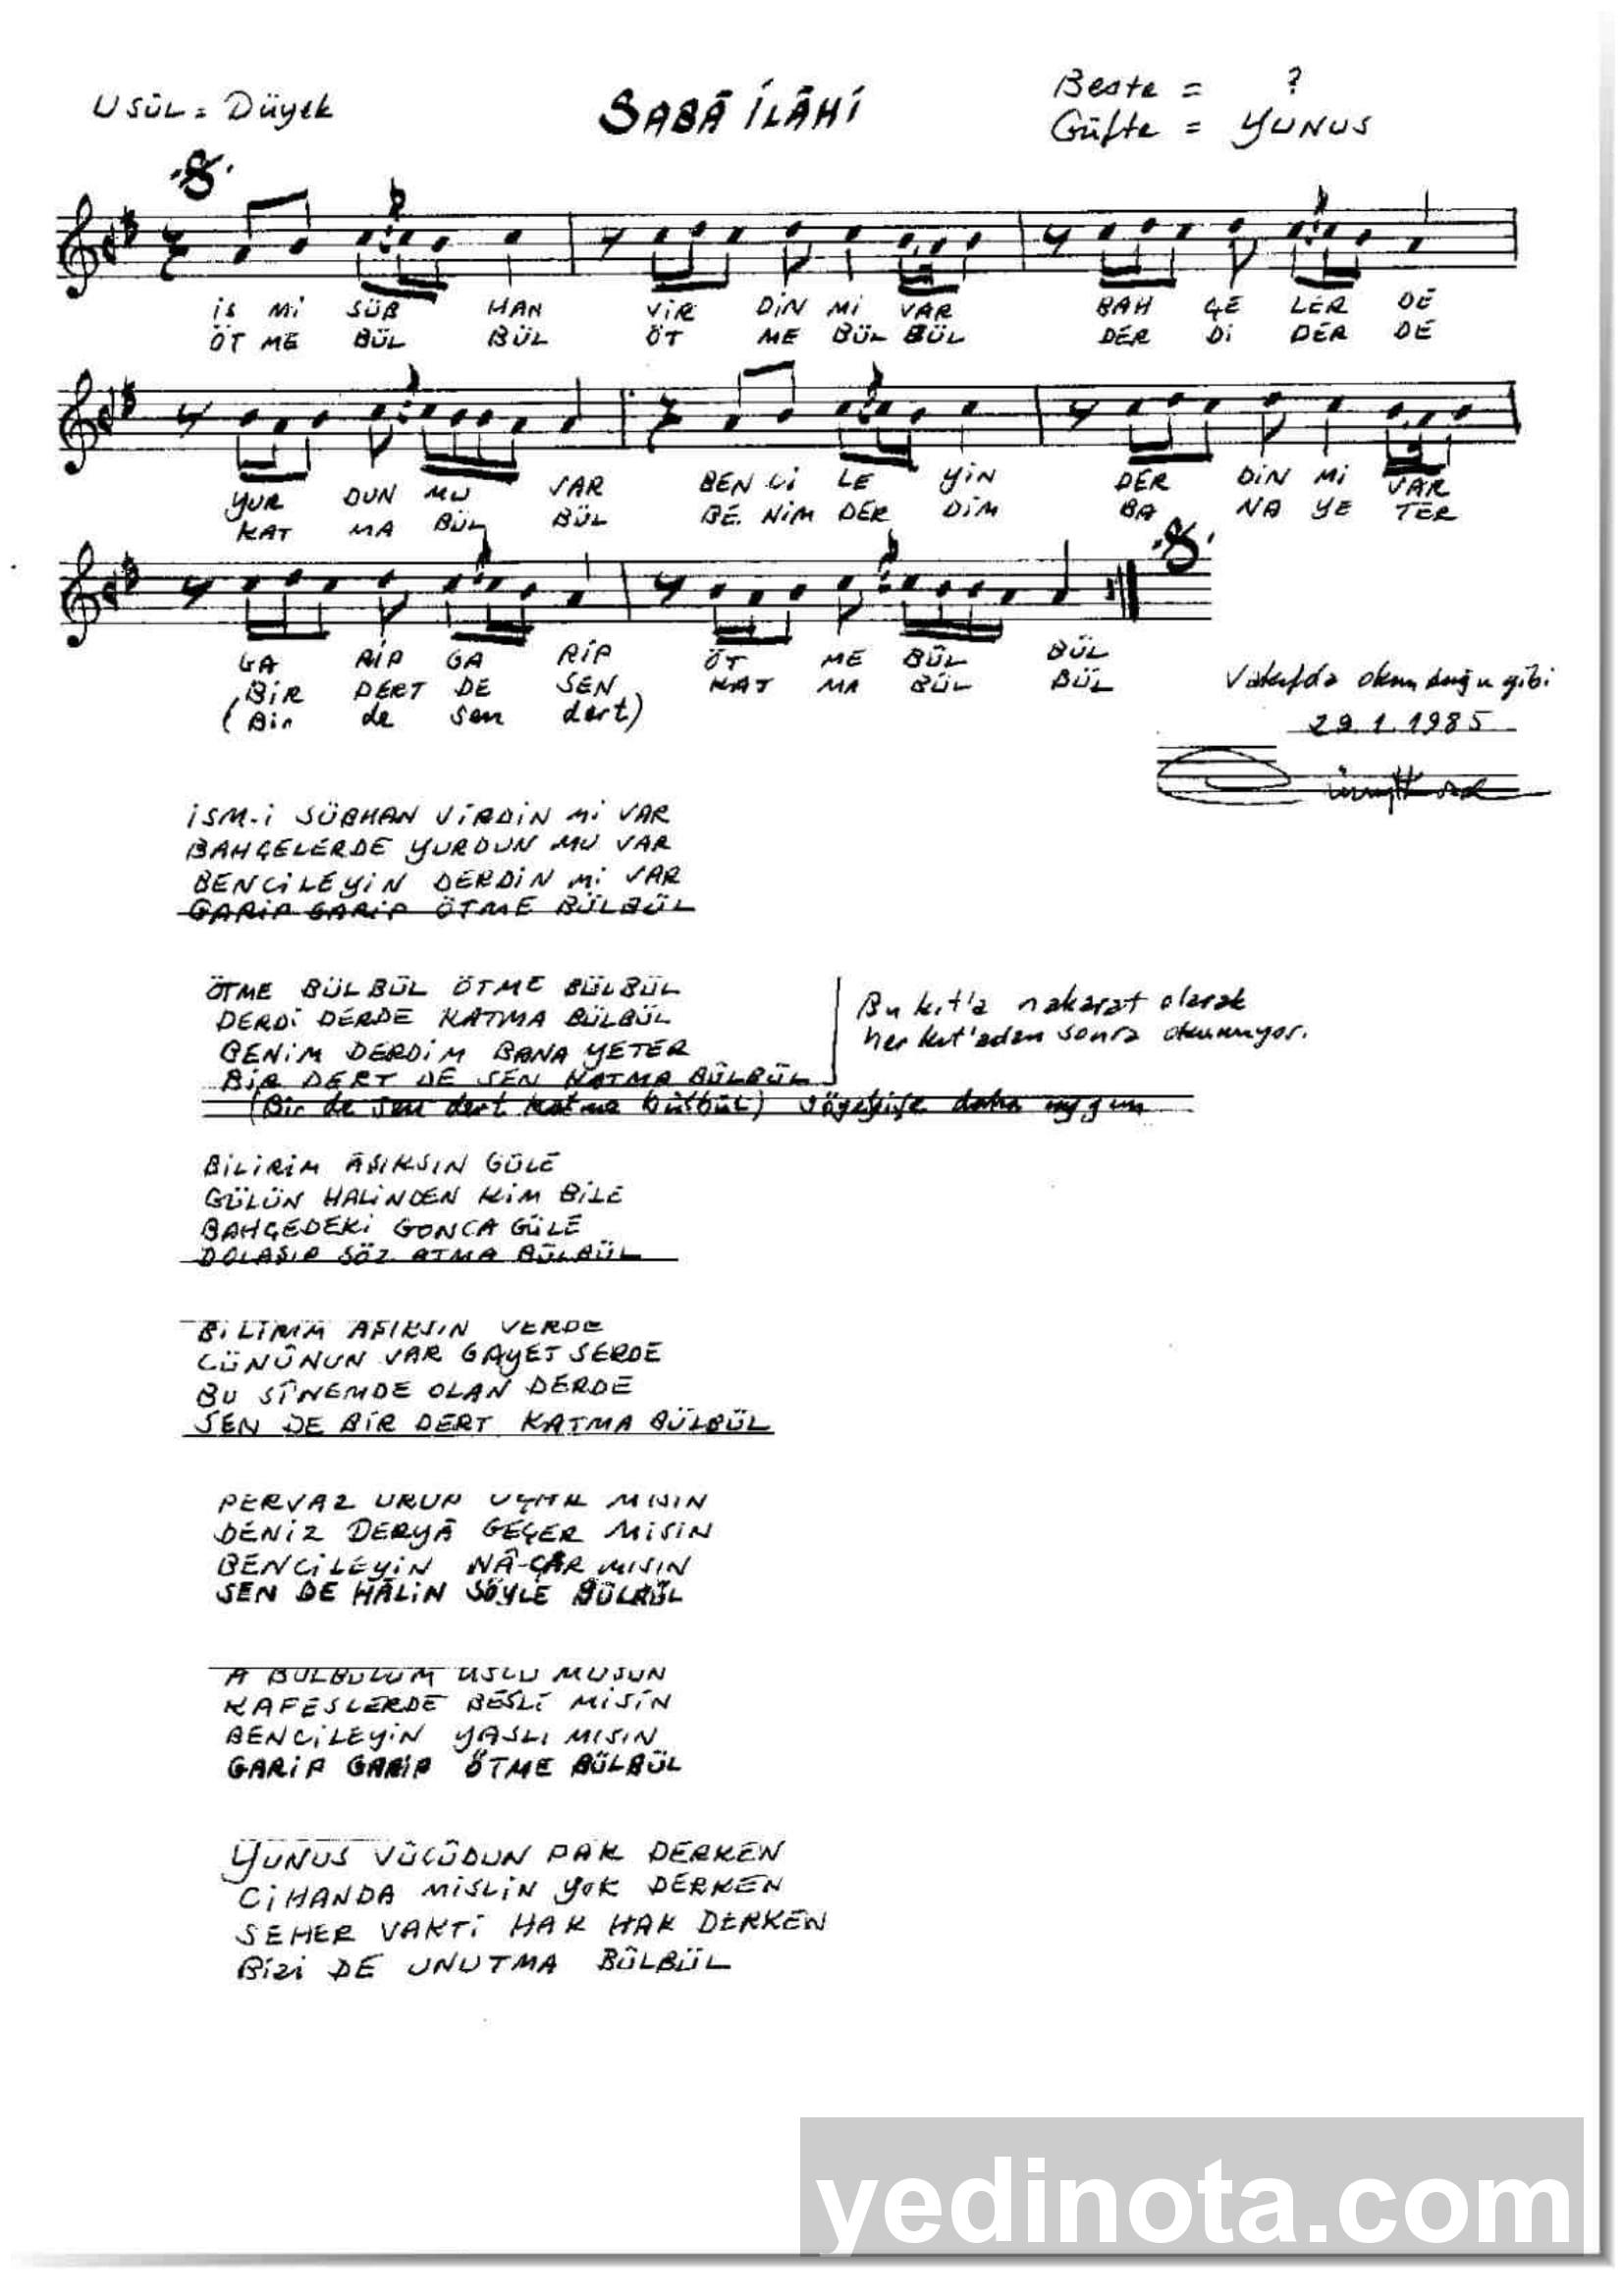 USÛL = Düyek
SABÂ İLÂHİ
Beste = ?
Güfte = YUNUS
İS Mİ SÜB HAN VİR DİN Mİ VAR BAH ÇE LER DE
ÖT ME BÜL BÜL ÖT ME BÜL BÜL DER Dİ DER DE
YUR DUN MU VAR BEN Cİ LE YİN DER DİN Mİ VAR
KAT MA BÜL BÜL BE NİM DER DİM BA NA YE TER
GA RİP GA RİP ÖT ME BÜL BÜL
BİR DERT DE SEN KAT MA BÜL BÜL
(Bir de sen dert)
Vakıfda okunduğu gibi
29.1.1985
İSM-İ SÜBHAN VİRDİN Mİ VAR
BAHÇELERDE YURDUN MU VAR
BENCİLEYİN DERDİN Mİ VAR
GARİP GARİP ÖTME BÜLBÜL
ÖTME BÜLBÜL ÖTME BÜLBÜL
DERDİ DERDE KATMA BÜLBÜL
BENİM DERDİM BANA YETER
BİR DERT DE SEN KATMA BÜLBÜL
Bu kıt'a nakarat olarak
her kıt'adan sonra okunuyor.
(Bir de sen dert katma bülbül) söyleyişe daha uygun
BİLİRİM ÂŞIKSIN GÜLE
GÜLÜN HALİNDEN KİM BİLE
BAHÇEDEKİ GONCA GÜLE
DOLAŞIP SÖZ ATMA BÜLBÜL
BİLİRİM AŞIKSIN VERDE
CÜNÛNUN VAR GAYET SERDE
BU SÎNEMDE OLAN DERDE
SEN DE BİR DERT KATMA BÜLBÜL
PERVAZ URUP UÇAR MISIN
DENİZ DERYÂ GEÇER MİSİN
BENCİLEYİN NÂ-ÇÂR MISIN
SEN DE HÂLİN SÖYLE BÜLBÜL
A BÜLBÜLÜM USLU MUSUN
KAFESLERDE BESLİ MİSİN
BENCİLEYİN YASLI MISIN
GARİP GARİP ÖTME BÜLBÜL
YUNUS VÜCÛDUN PAK DERKEN
CİHANDA MİSLİN YOK DERKEN
SEHER VAKTİ HAK HAK DERKEN
BİZİ DE UNUTMA BÜLBÜL
yedinota.com